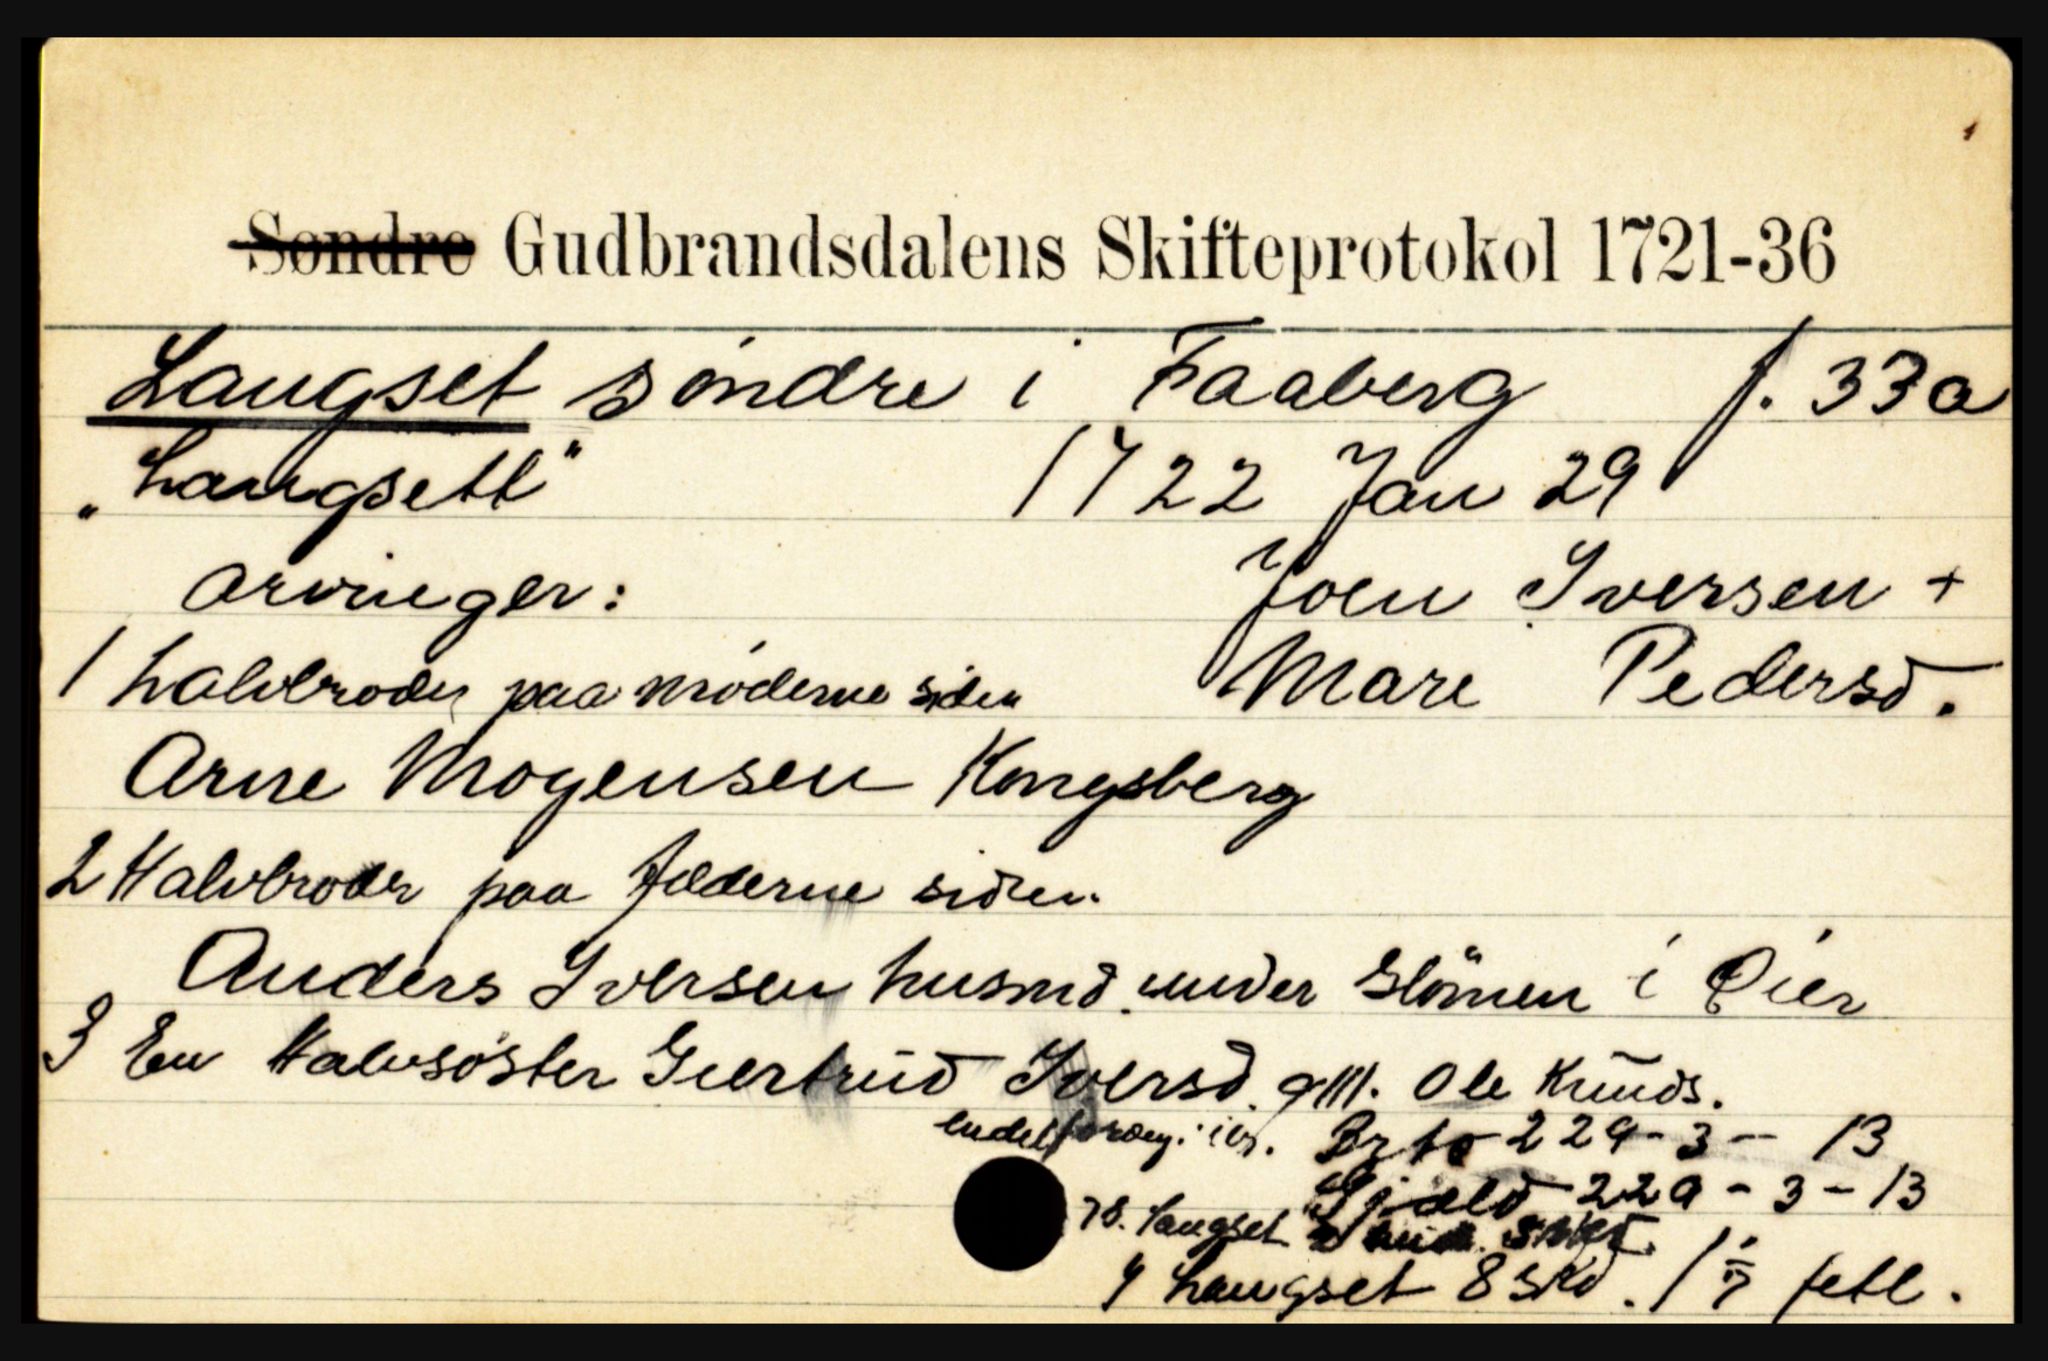 Søndre Gudbrandsdalens Skifteprotokol 1721-36
Langset söndre i Faaberg f. 33a
"Langsett" 1722 Jan 29
Arvinger: Joen Iversen +
1 halvbroder paa möderne siden Mare Pedersd.
Arne Mogensen Kongsberg
2 Halvbroder paa fæderne siden.
Anders Iversen husmd. under Glömen i Öier
3 En Halvsöster Giertrud Iversd. gm. Ole Knuds.
Brto 229-3-13
Gjæld 229-3-13
Langset
Langset 8 skd. fetl.